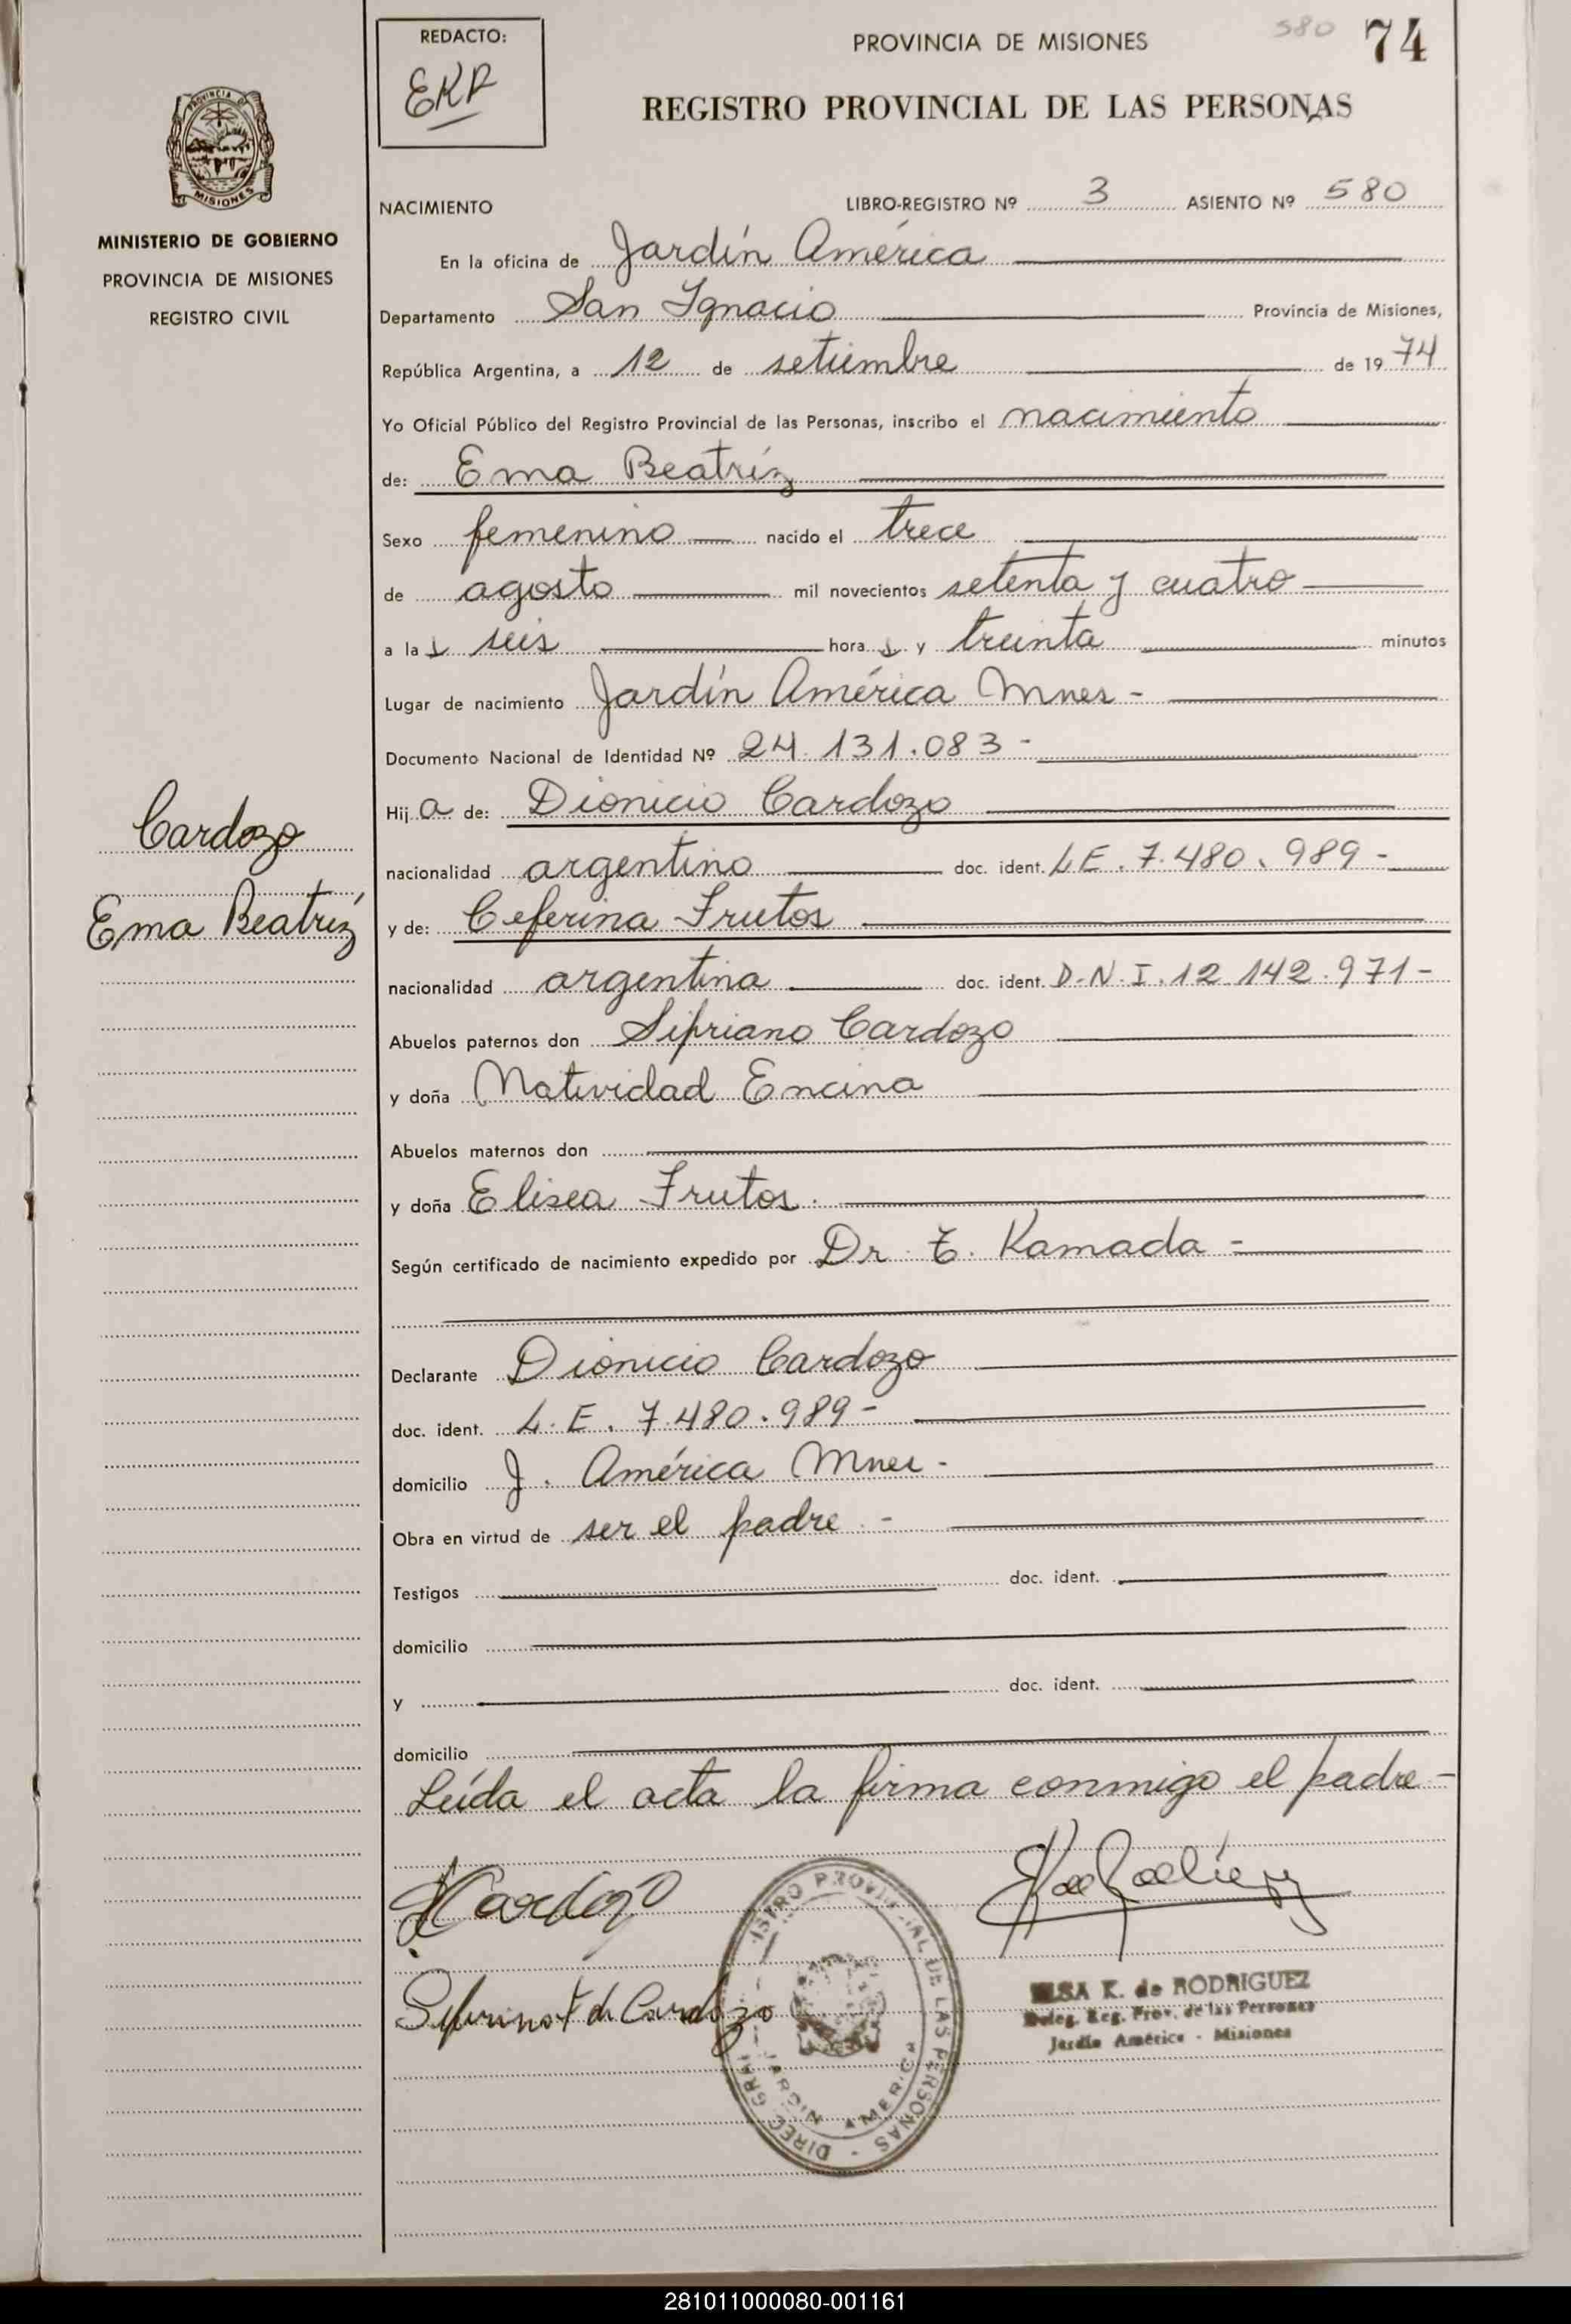 REDACTO:
EKR
PROVINCIA DE MISIONES
580 74
REGISTRO PROVINCIAL DE LAS PERSONAS
PROVINCIA DE
MISIONES
MINISTERIO DE GOBIERNO
PROVINCIA DE MISIONES
REGISTRO CIVIL
NACIMIENTO LIBRO-REGISTRO Nº 3 ASIENTO Nº 580
En la oficina de Jardín América
Departamento San Ignacio Provincia de Misiones,
República Argentina, a 12 de setiembre de 1974
Yo Oficial Público del Registro Provincial de las Personas, inscribo el nacimiento
de: Ema Beatríz
Sexo femenino nacido el trece
de agosto mil novecientos setenta y cuatro
a las seis horas y treinta minutos
Lugar de nacimiento Jardín América Mnes -
Documento Nacional de Identidad Nº 24.131.083 -
Hija de: Dionicio Cardozo
nacionalidad argentino doc. ident. L.E. 7.480.989 -
y de: Ceferina Frutos
nacionalidad argentina doc. ident. D.N.I. 12.142.971 -
Abuelos paternos don Sipriano Cardozo
y doña Natividad Encina
Abuelos maternos don
y doña Elisea Frutos.
Según certificado de nacimiento expedido por Dr. T. Kamada -
Declarante Dionicio Cardozo
doc. ident. L.E. 7.480.989 -
domicilio J. América Mnes -
Obra en virtud de ser el padre. -
Testigos doc. ident.
domicilio
y doc. ident.
domicilio
Leída el acta la firma conmigo el padre -
Cardozo
Ema Beatríz
Cardozo
Seferina F de Cardozo
REGISTRO PROVINCIAL DE LAS PERSONAS - DIREC. GRAL.
JARDIN AMERICA
ELSA K. de RODRIGUEZ
Deleg. Reg. Prov. de las Personas
Jardín América - Misiones
281011000080-001161